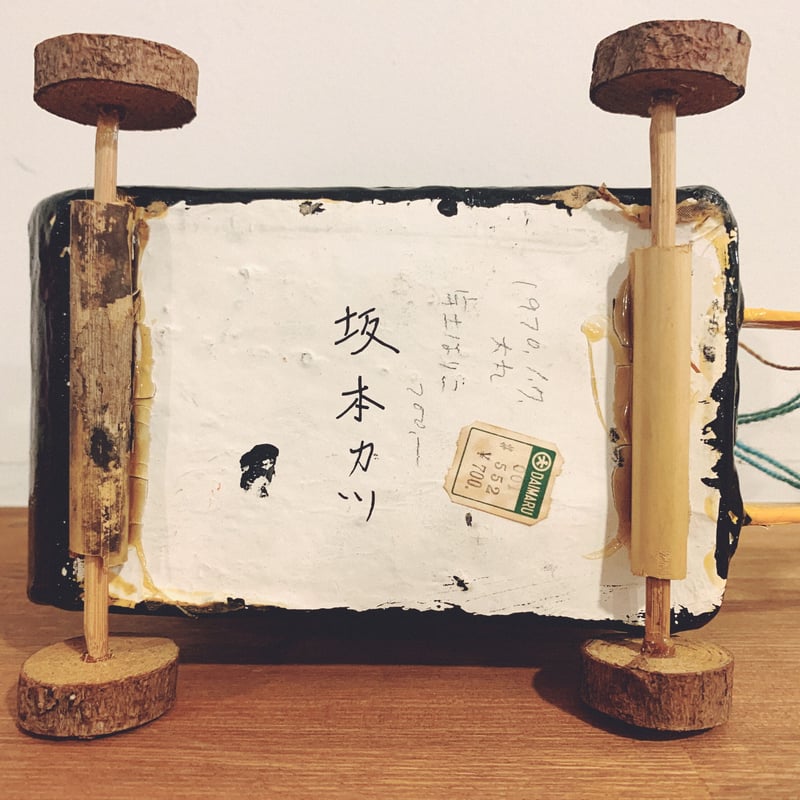 1970.1.17.
大丸
700.—
坂本カツ
DAIMARU
001
# 552
¥700.